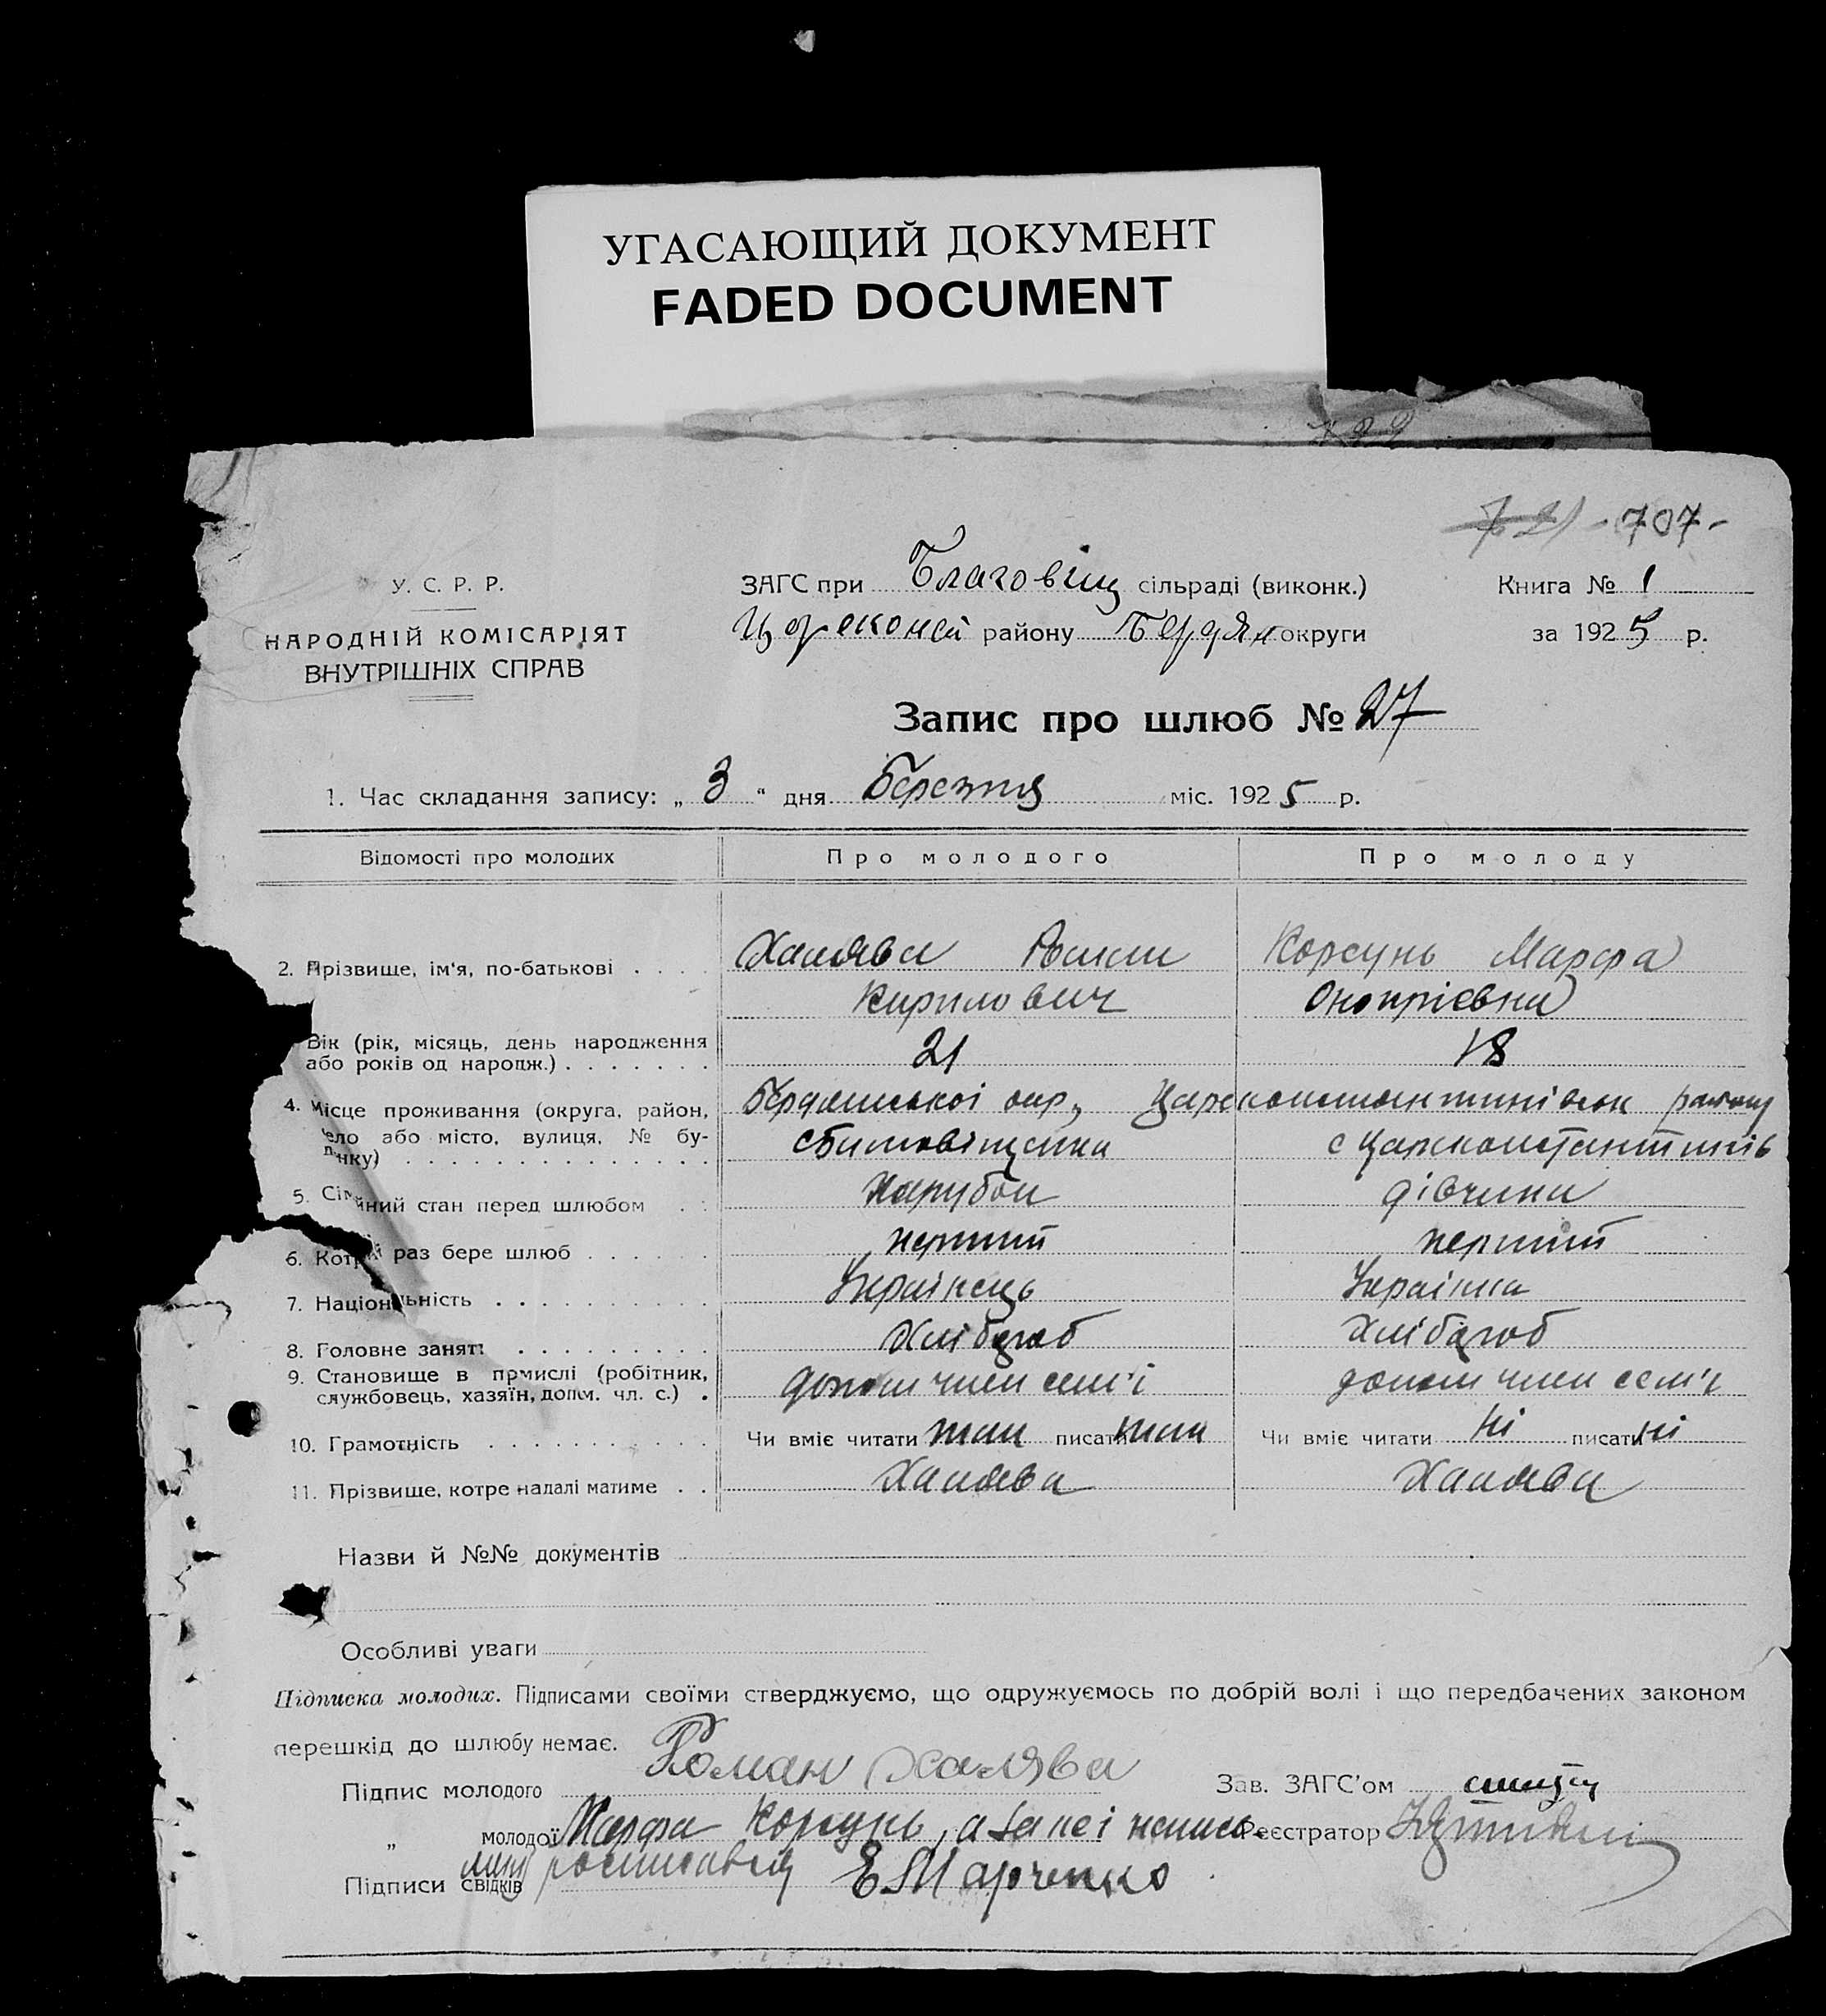 УГАСАЮЩИЙ ДОКУМЕНТ
FADED DOCUMENT
721 - 707 -
У. С. Р. Р.
НАРОДНІЙ КОМІСАРІЯТ
ВНУТРІШНІХ СПРАВ
ЗАГС при Благовіщ сільраді (виконк.)
Книга № 1
району Бердян округи
за 1925 р.
Запис про шлюб № 27
1. Час складання запису: „ 3 “ дня Березня міс. 1925 р.
Відомості про молодих Про молодого Про молоду
2. Прізвище, ім'я, по-батькові . . . . Халява Роман Корсунь Марфа
Кирилович Онопрієвна
Вік (рік, місяць, день народження
або років од народж.) . . . . . . . 21 18
4. Місце проживання (округа, район, Бердянської окр, Цареконстантинівськ району
село або місто, вулиця, № бу-
динку) . . . . . . . . . . . . . . с Цареконстантинів
5. Сімейний стан перед шлюбом . . Парубок дівчина
6. Котрий раз бере шлюб . . . . . . перший перший
7. Національність . . . . . . . . . . Українець Українка
8. Головне занят . . . . . . . . . Хлібороб Хлібороб
9. Становище в промислі (робітник,
службовець, хазяїн, допом. чл. с.) . допом член сем'ї допом член сем'ї
10. Грамотність . . . . . . . . . . . Чи вміє читати так писати так Чи вміє читати ні писати ні
11. Прізвище, котре надалі матиме . . Халява Халява
Назви й №№ документів
Особливі уваги
Підписка молодих. Підписами своїми стверджуємо, що одружуємось по добрій волі і що передбачених законом
перешкід до шлюбу немає.
Підпис молодого Роман Халява
Зав. ЗАГС'ом
„ молодої Марфа Корсунь, а за неї непись-
Реєстратор
Підписи свідків росписався Е Марченко